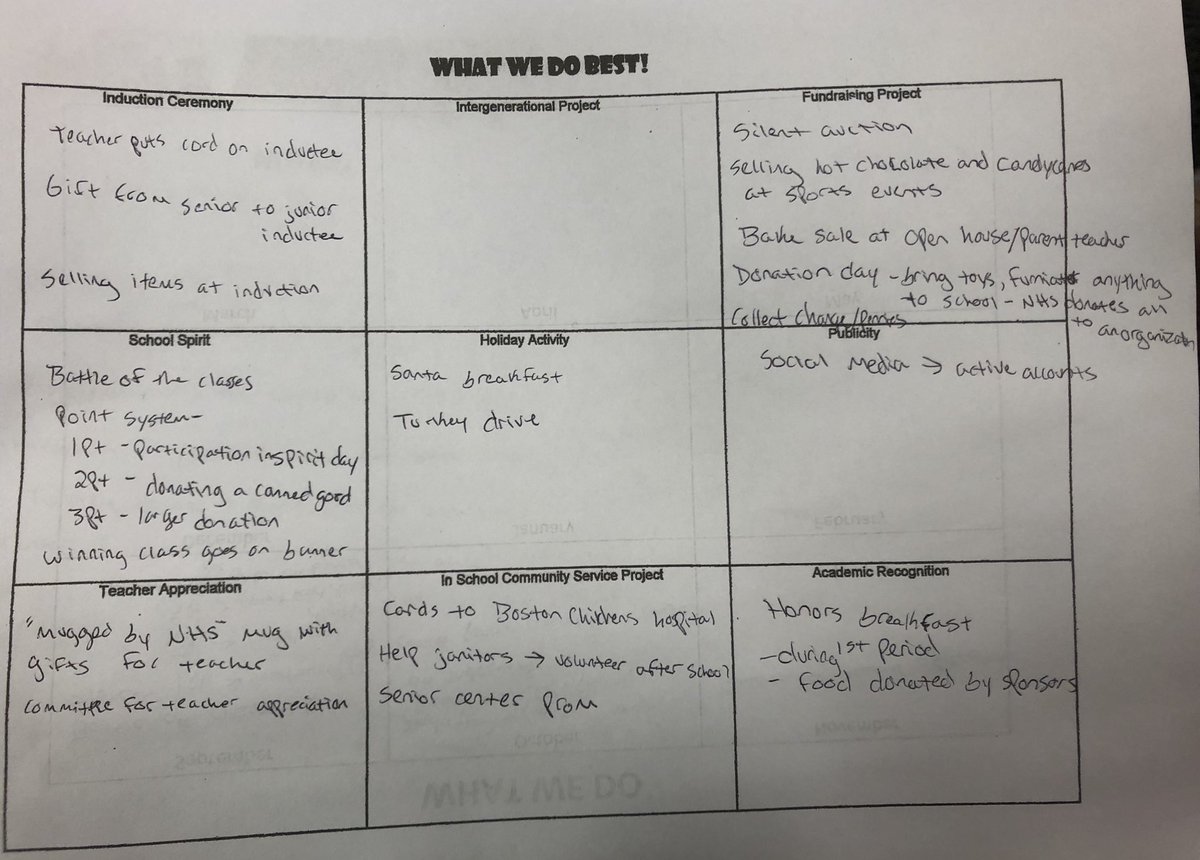 WHAT WE DO BEST!
Induction Ceremony
Teacher puts cord on inductee
Gift from senior to junior
inductee
Selling items at induction
Intergenerational Project
Fundraising Project
Silent auction
Selling hot chocolate and candycanes
at sports events
Bake sale at open house/parent teacher
Donation day - bring toys, anything
to school - NHS donates all
to an organization
Collect change/Pennies
School Spirit
Battle of the classes
Point system-
1pt - participation in spirit day
2pt - donating a canned good
3pt - larger donation
winning class goes on banner
Holiday Activity
Santa breakfast
Turkey drive
Publicity
Social Media → active accounts
Teacher Appreciation
"Mugged by NHS" mug with
gifts for teacher
committee for teacher appreciation
In School Community Service Project
Cards to Boston Chickens hospital
Help janitors → volunteer after school
Senior center prom
Academic Recognition
Honors breakfast
- during 1st period
- food donated by sponsors
March
April
May
January
February
September
October
November
WHAT WE DO